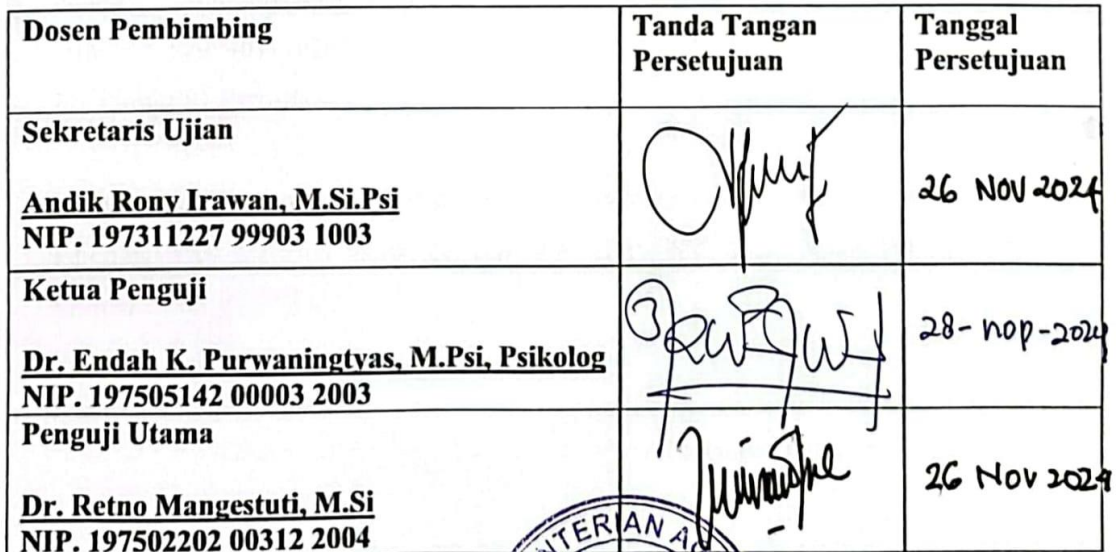 Dosen Pembimbing
Tanda Tangan
Persetujuan
Tanggal
Persetujuan
Sekretaris Ujian
Andik Rony Irawan, M.Si.Psi
NIP. 197311227 99903 1003
26 NOV 2024
Ketua Penguji
Dr. Endah K. Purwaningtyas, M.Psi, Psikolog
NIP. 197505142 00003 2003
28-nop-2024
Penguji Utama
Dr. Retno Mangestuti, M.Si
NIP. 197502202 00312 2004
26 Nov 2024
NTERIAN AG